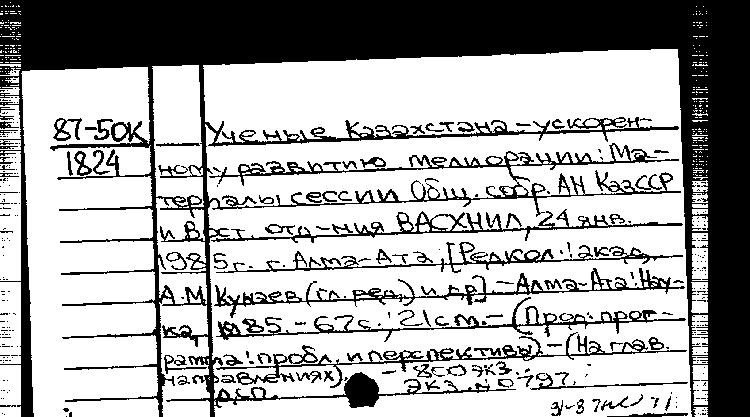 87-50К Ученые Казахстана - ускорен-
1824 ному развитию мелиорации: Ма-
териалы сессии Общ. собр. АН КазССР
и Вост. отд-ния ВАСХНИЛ, 24 янв.
1985г. г. Алма-Ата, [Редкол.: акад.
А.М. Кунаев (гл. ред.) и др]. - Алма-Ата: Нау-
ка, 1985. - 67с.; 21см. - (Прод. прог-
рамма: пробл. и перспективы). - (На глав.
направлениях). - 800 экз.
Д.С.П. Экз. N 0797.